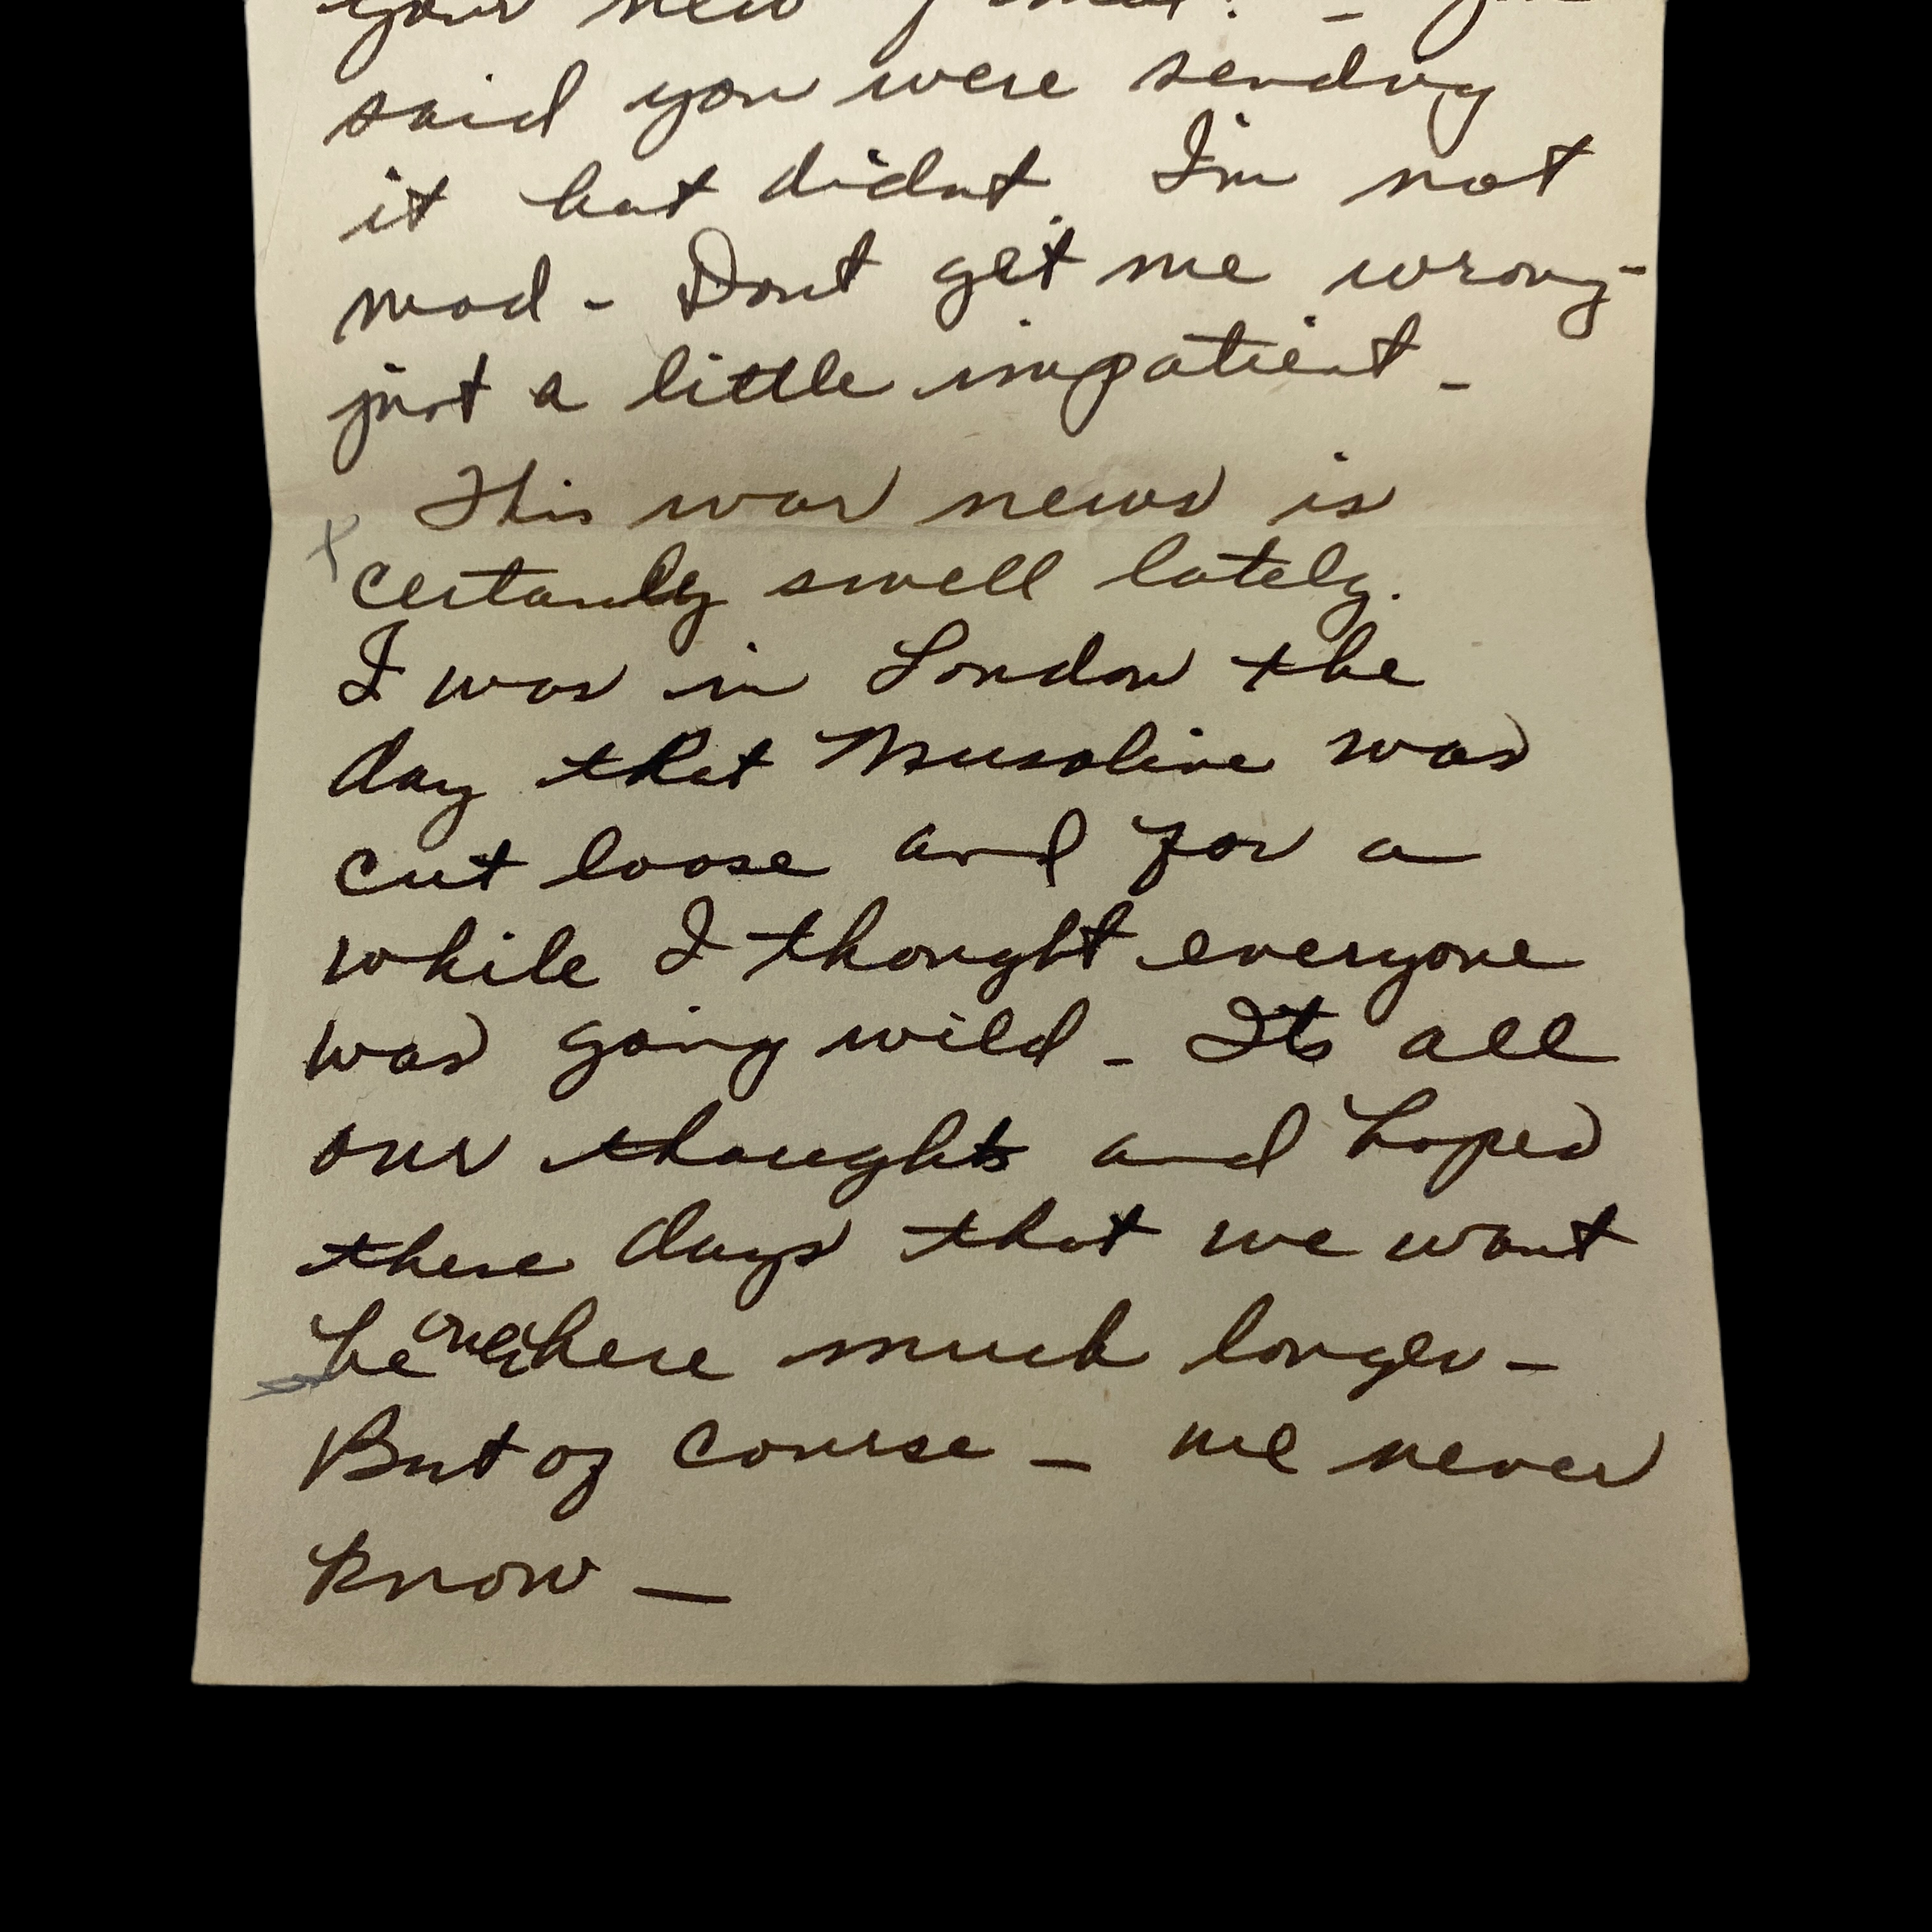 your new
said you were sending
it but didnt. I'm not
mad - Dont get me wrong -
just a little impatient -
This war news is
certainly swell lately.
I was in London the
day that Musoline was
cut loose and for a
while I thought everyone
was going wild - Its all
our thoughts and hopes
these days that we wont
be over here much longer -
But of course - we never
know -